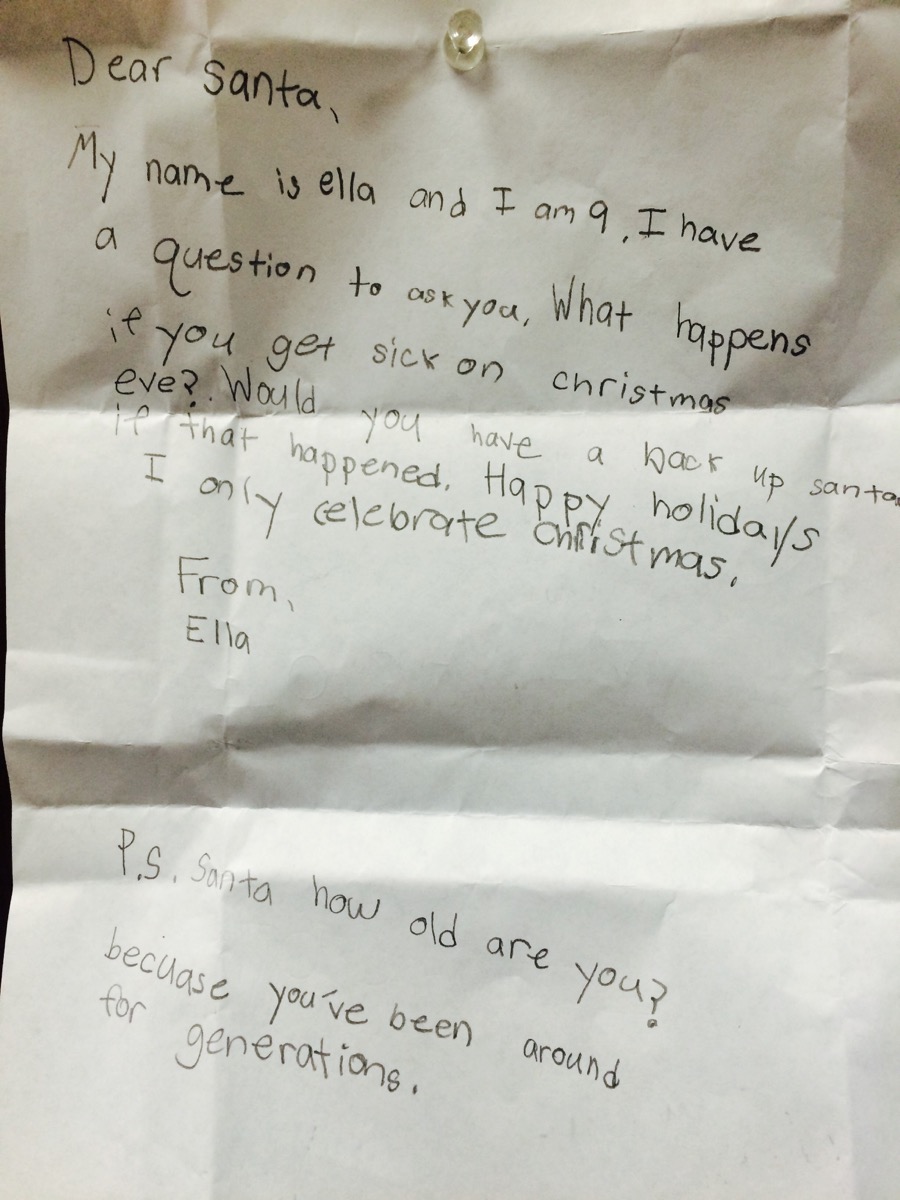 Dear Santa,
My name is ella and I am 9. I have
a question to ask you, What happens
if you get sick on christmas
eve? Would you have a back up santa
if that happened. Happy holidays
I only celebrate christmas.
From,
Ella
P.S. Santa how old are you?
becuase you've been around
for generations.